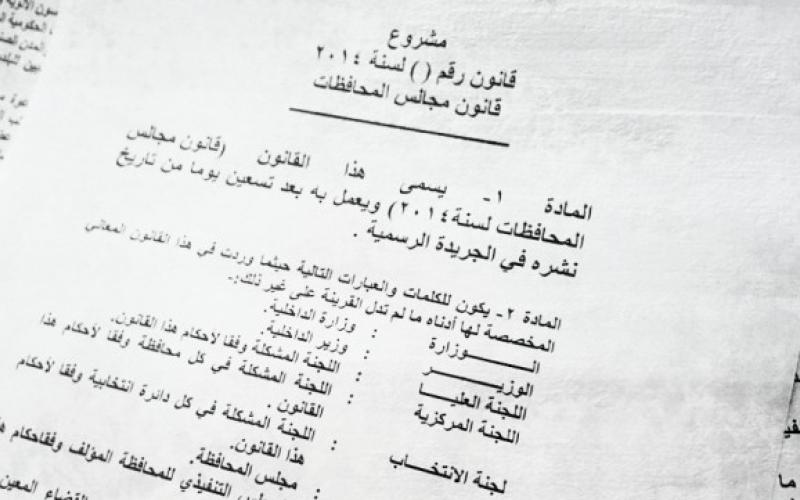 مشروع
قانون رقم ( ) لسنة ٢٠١٤
قانون مجالس المحافظات
المادة ١- يسمى هذا القانون (قانون مجالس
المحافظات لسنة ٢٠١٤) ويعمل به بعد تسعين يوما من تاريخ
نشره في الجريدة الرسمية .
المادة ٢- يكون للكلمات والعبارات التالية حيثما وردت في هذا القانون المعاني
المخصصة لها أدناه ما لم تدل القرينة على غير ذلك:-
الـــــــوزارة : وزارة الداخلية.
الوزيـــــــر : وزير الداخلية.
اللجنة العليـا : اللجنة المشكلة وفقا لأحكام هذا القانون.
اللجنة المركزية : اللجنة المشكلة في كل محافظة وفقا لأحكام هذا
القانون .
لجنة الانتخـاب : اللجنة المشكلة في كل دائرة انتخابية وفقا لأحكام
هذا القانون.
: مجلس المحافظة.
التنفيذي للمحافظة المؤلف وفقا
القضاء المعين